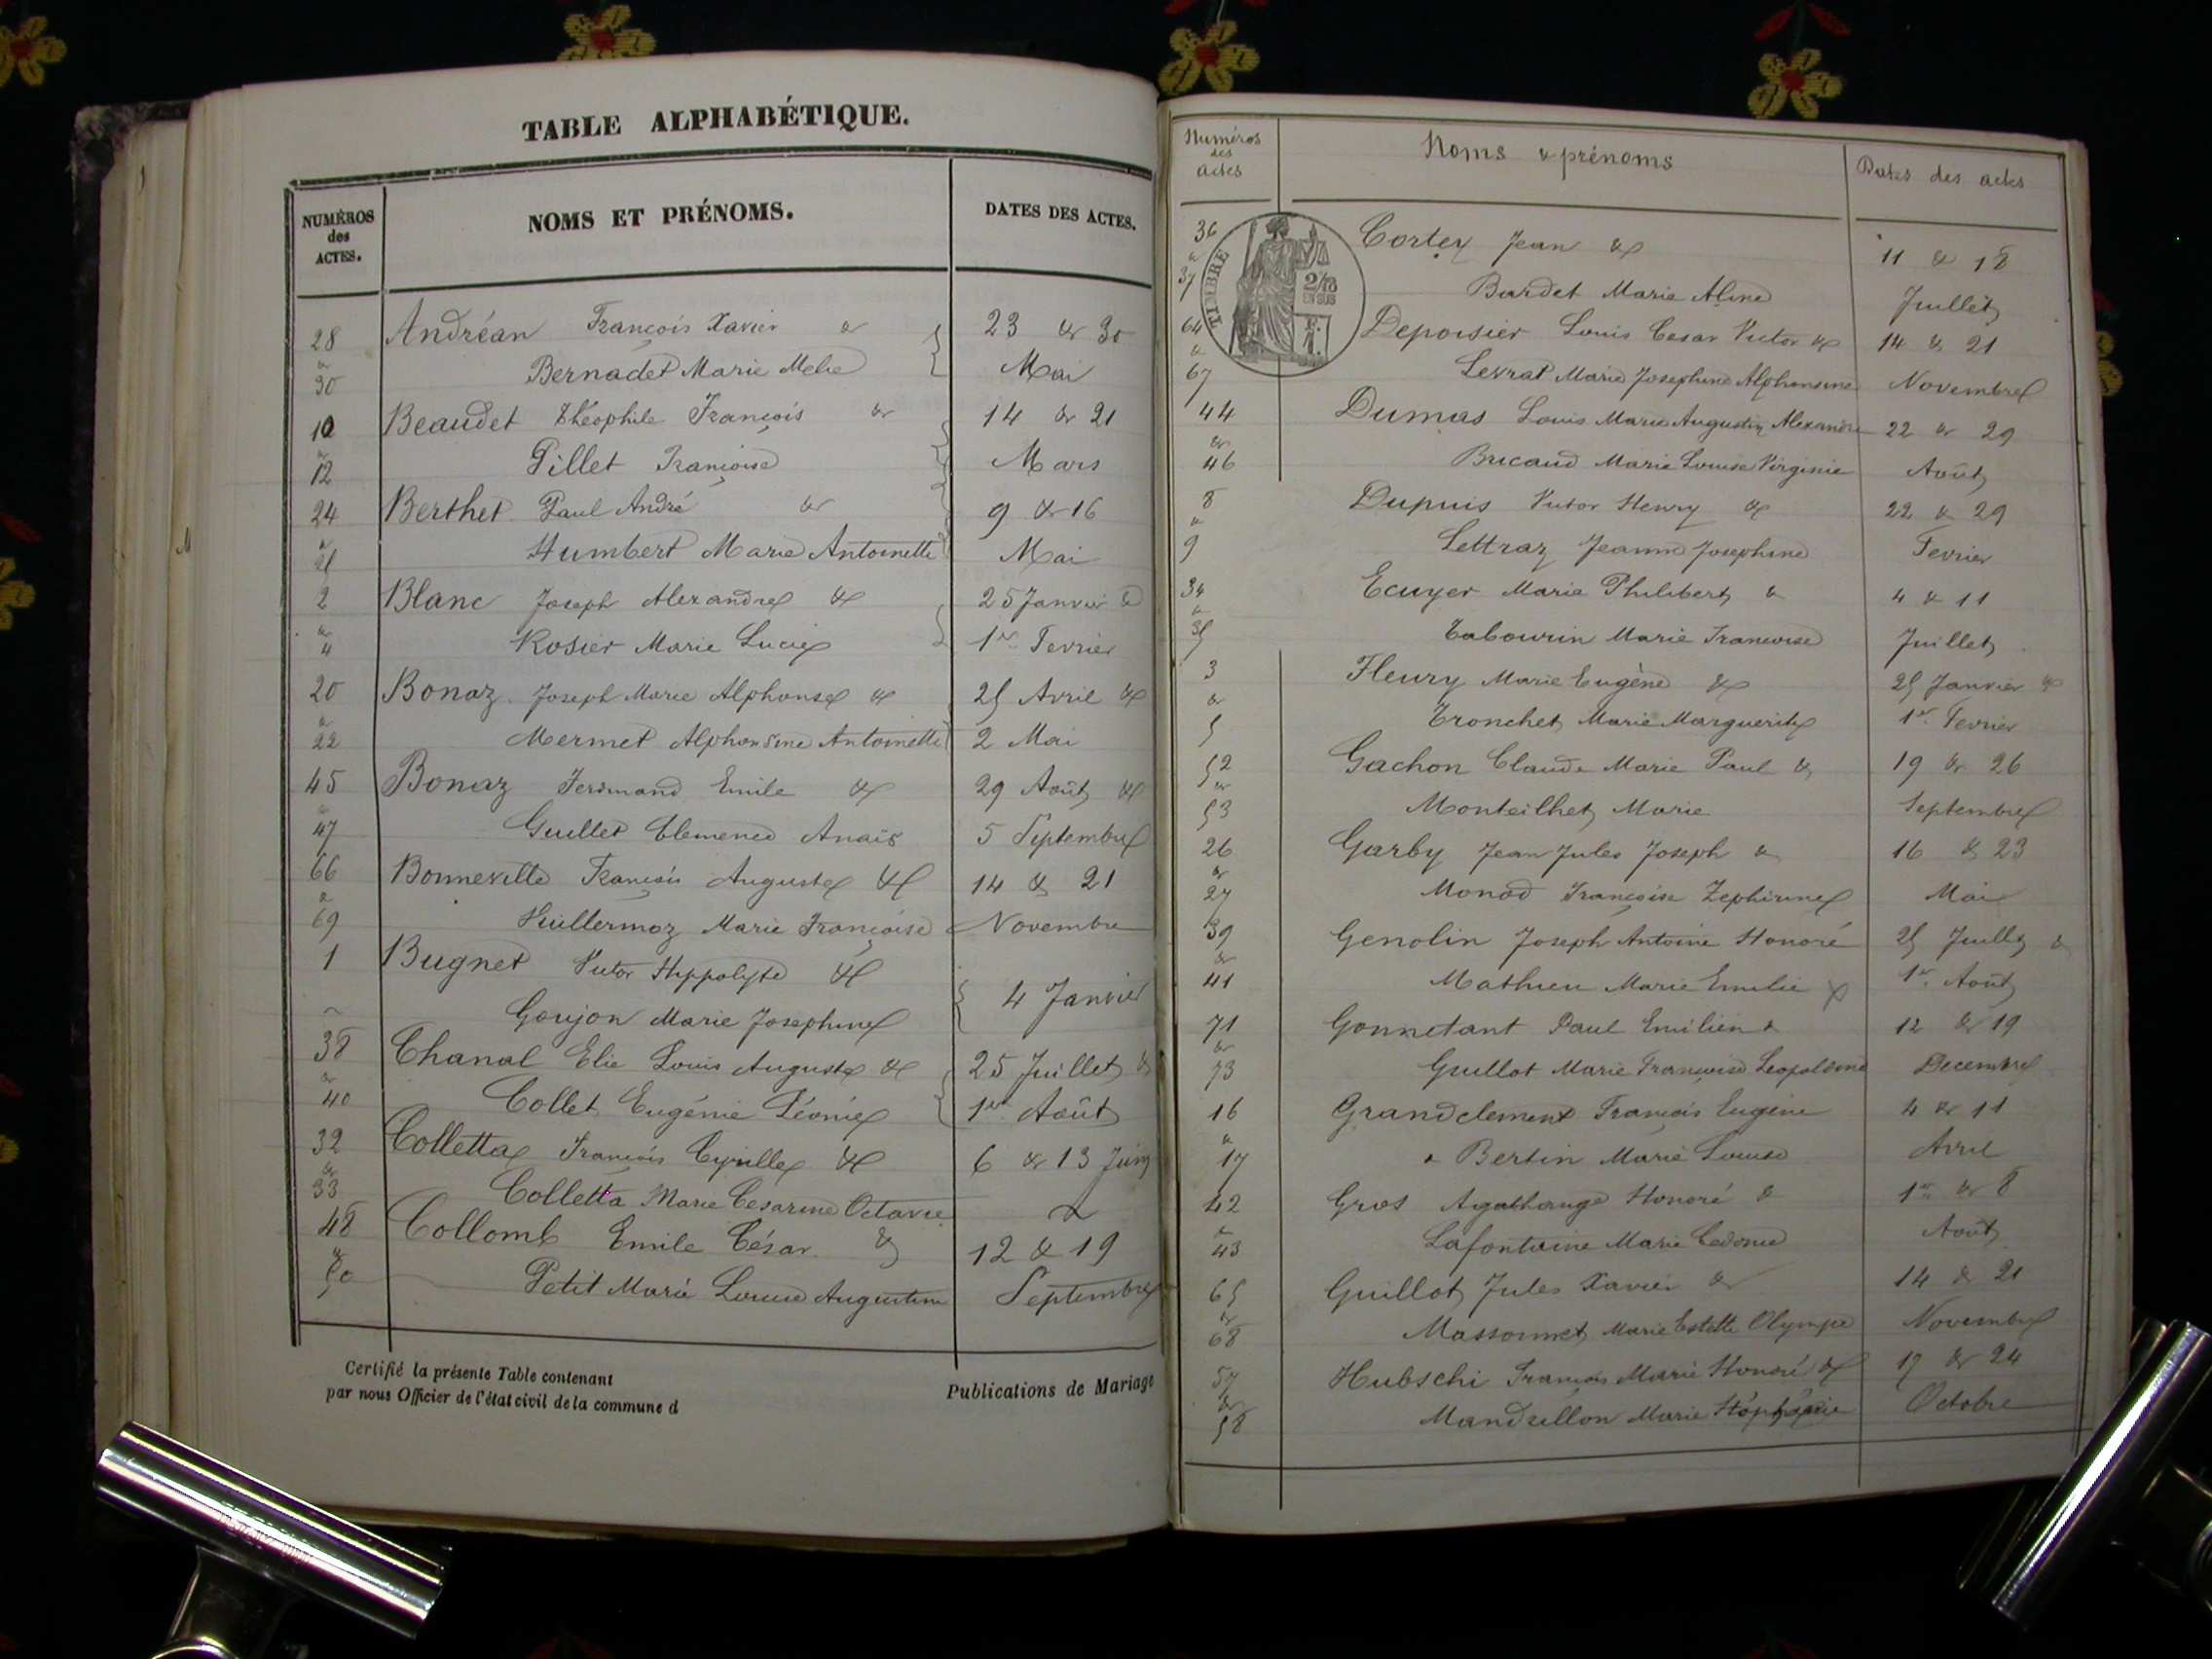 TABLE ALPHABÉTIQUE.
NUMÉROS des ACTES. NOMS ET PRÉNOMS. DATES DES ACTES.
28 Andréan François Xavier & 23 & 30
& 30 Bernadet Marie Melie Mai
10 Beaudet Théophile François & 14 & 21
& 12 Pillet Françoise Mars
24 Berthet Paul André & 9 & 16
& Humbert Marie Antoinette Mai
2 Blanc Joseph Alexandre & 25 Janvier &
& 4 Rosier Marie Lucie 1er Fevrier
20 Bonaz Joseph Marie Alphonse & 25 Avril &
& 22 Mermet Alphonsine Antoinette 2 Mai
45 Bonaz Ferdinand Emile & 29 Août &
& 47 Guillet Clemence Anaïs 5 Septembre
66 Bonneville François Auguste & 14 & 21
& 69 Huillermoz Marie Françoise Novembre
1 Bugnet Victor Hippolyte & 4 Janvier
Goujon Marie Josephine
38 Chanal Elie Louis Auguste & 25 Juillet &
& 40 Collet Eugénie Léonie 1er Août
32 Colletta François Cyrille & 6 & 13 Juin
& 33 Colletta Marie Cesarine Octavie
48 Collomb Emile César & 12 & 19
& 50 Petit Marie Louise Augustine Septembre
Certifié la présente Table contenant Publications de Mariage
par nous Officier de l'état civil de la commune d
Numéros des actes Noms & prénoms Dates des actes
TIMBRE 2/10 EN SUS
36 Cortex Jean & 11 & 18
& 37 Bardet Marie Aline Juillet
64 Depoisier Louis Cesar Victor & 14 & 21
& 67 Levrat Marie Josephine Alphonsine Novembre
44 Dumas Louis Marie Augustin Alexandre 22 & 29
& 46 Bricaud Marie Louise Virginie Août
8 Dupuis Victor Henry & 22 & 29
& 9 Lettraz Jeanne Josephine Fevrier
34 Ecuyer Marie Philibert & 4 & 11
& 35 Tabourin Marie Francoise Juillet
3 Fleury Marie Eugène & 25 Janvier &
& 5 Tronchet Marie Marguerite 1er Fevrier
52 Gachon Claude Marie Paul & 19 & 26
& 53 Monteilhet Marie Septembre
26 Garby Jean Jules Joseph & 16 & 23
& 27 Monod Françoise Zephirine Mai
39 Genolin Joseph Antoine Honoré 25 Juillet &
& 41 Mathieu Marie Emilie & 1er Août
71 Gonnetant Paul Emilien & 12 & 19
& 73 Guillot Marie Françoise Leopoldine Decembre
16 Grandclement François Eugène 4 & 11
& 17 & Bertin Marie Louise Avril
42 Gros Agathange Honoré & 1er & 8
& 43 Lafontaine Marie Août
65 Guillot Jules Xavier & 14 & 21
& 68 Massonnet Marie Estelle Olympe Novembre
57 Hubschi François Marie Honoré & 17 & 24
& 58 Mandrillon Marie Octobre